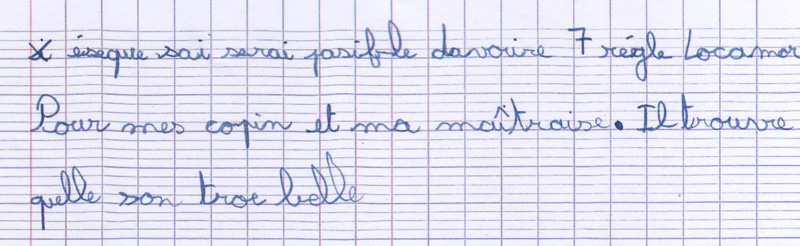 éseque sai serai posifble davoire 7 régle Locamor
Pour mes copin et ma maîtraise. Il trouvre
quelle son troe belle